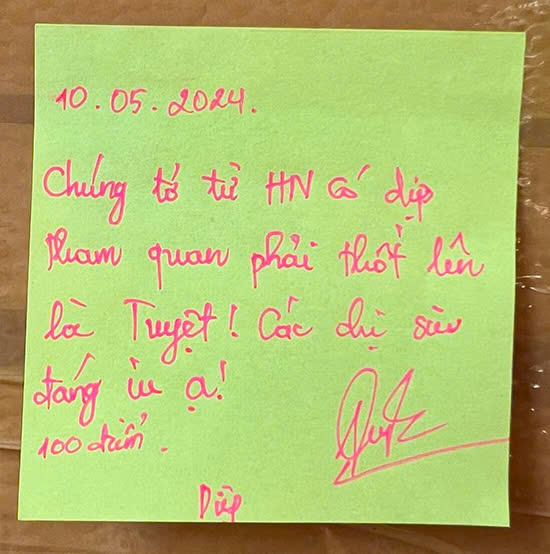 10.05.2024.
Chúng tớ từ HN có dịp
tham quan phải thốt lên
là Tuyệt! Các chị siêu
đáng iu ạ!
100 điểm.
Diệp